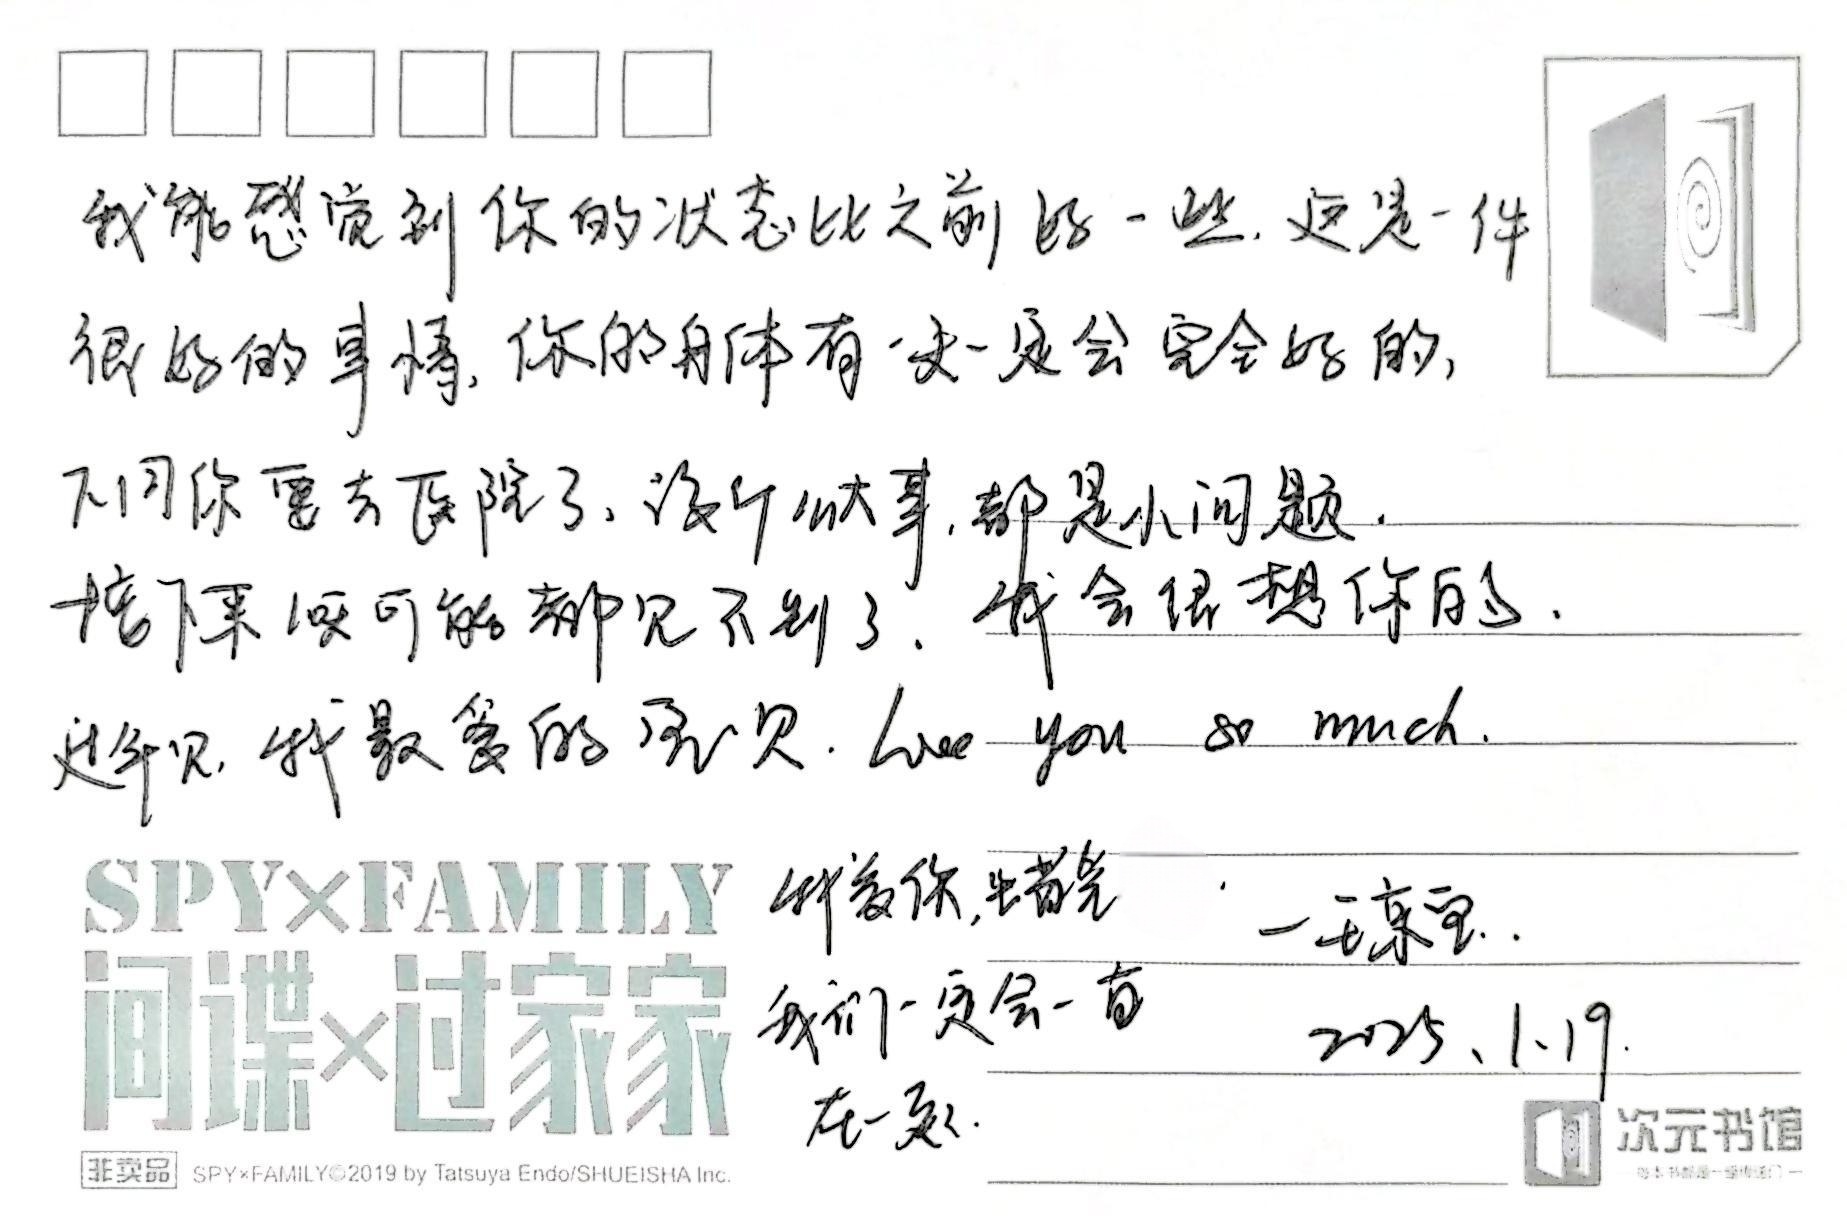 我能感觉到你的状态比之前好一些，这是一件
很好的事情，你的身体有一天一定会完全好的，
下周你要去医院了，没什么大事，都是小问题．
接下来很可能都见不到了，我会很想你的．
过年见，我最爱的宝贝．Love you so much.
我爱你，
一王琼宝．．
我们一定会一直
2025、1.19.
在一起．
SPY×FAMILY
间谍×过家家
非卖品 SPY×FAMILY©2019 by Tatsuya Endo/SHUEISHA Inc.
次元书馆